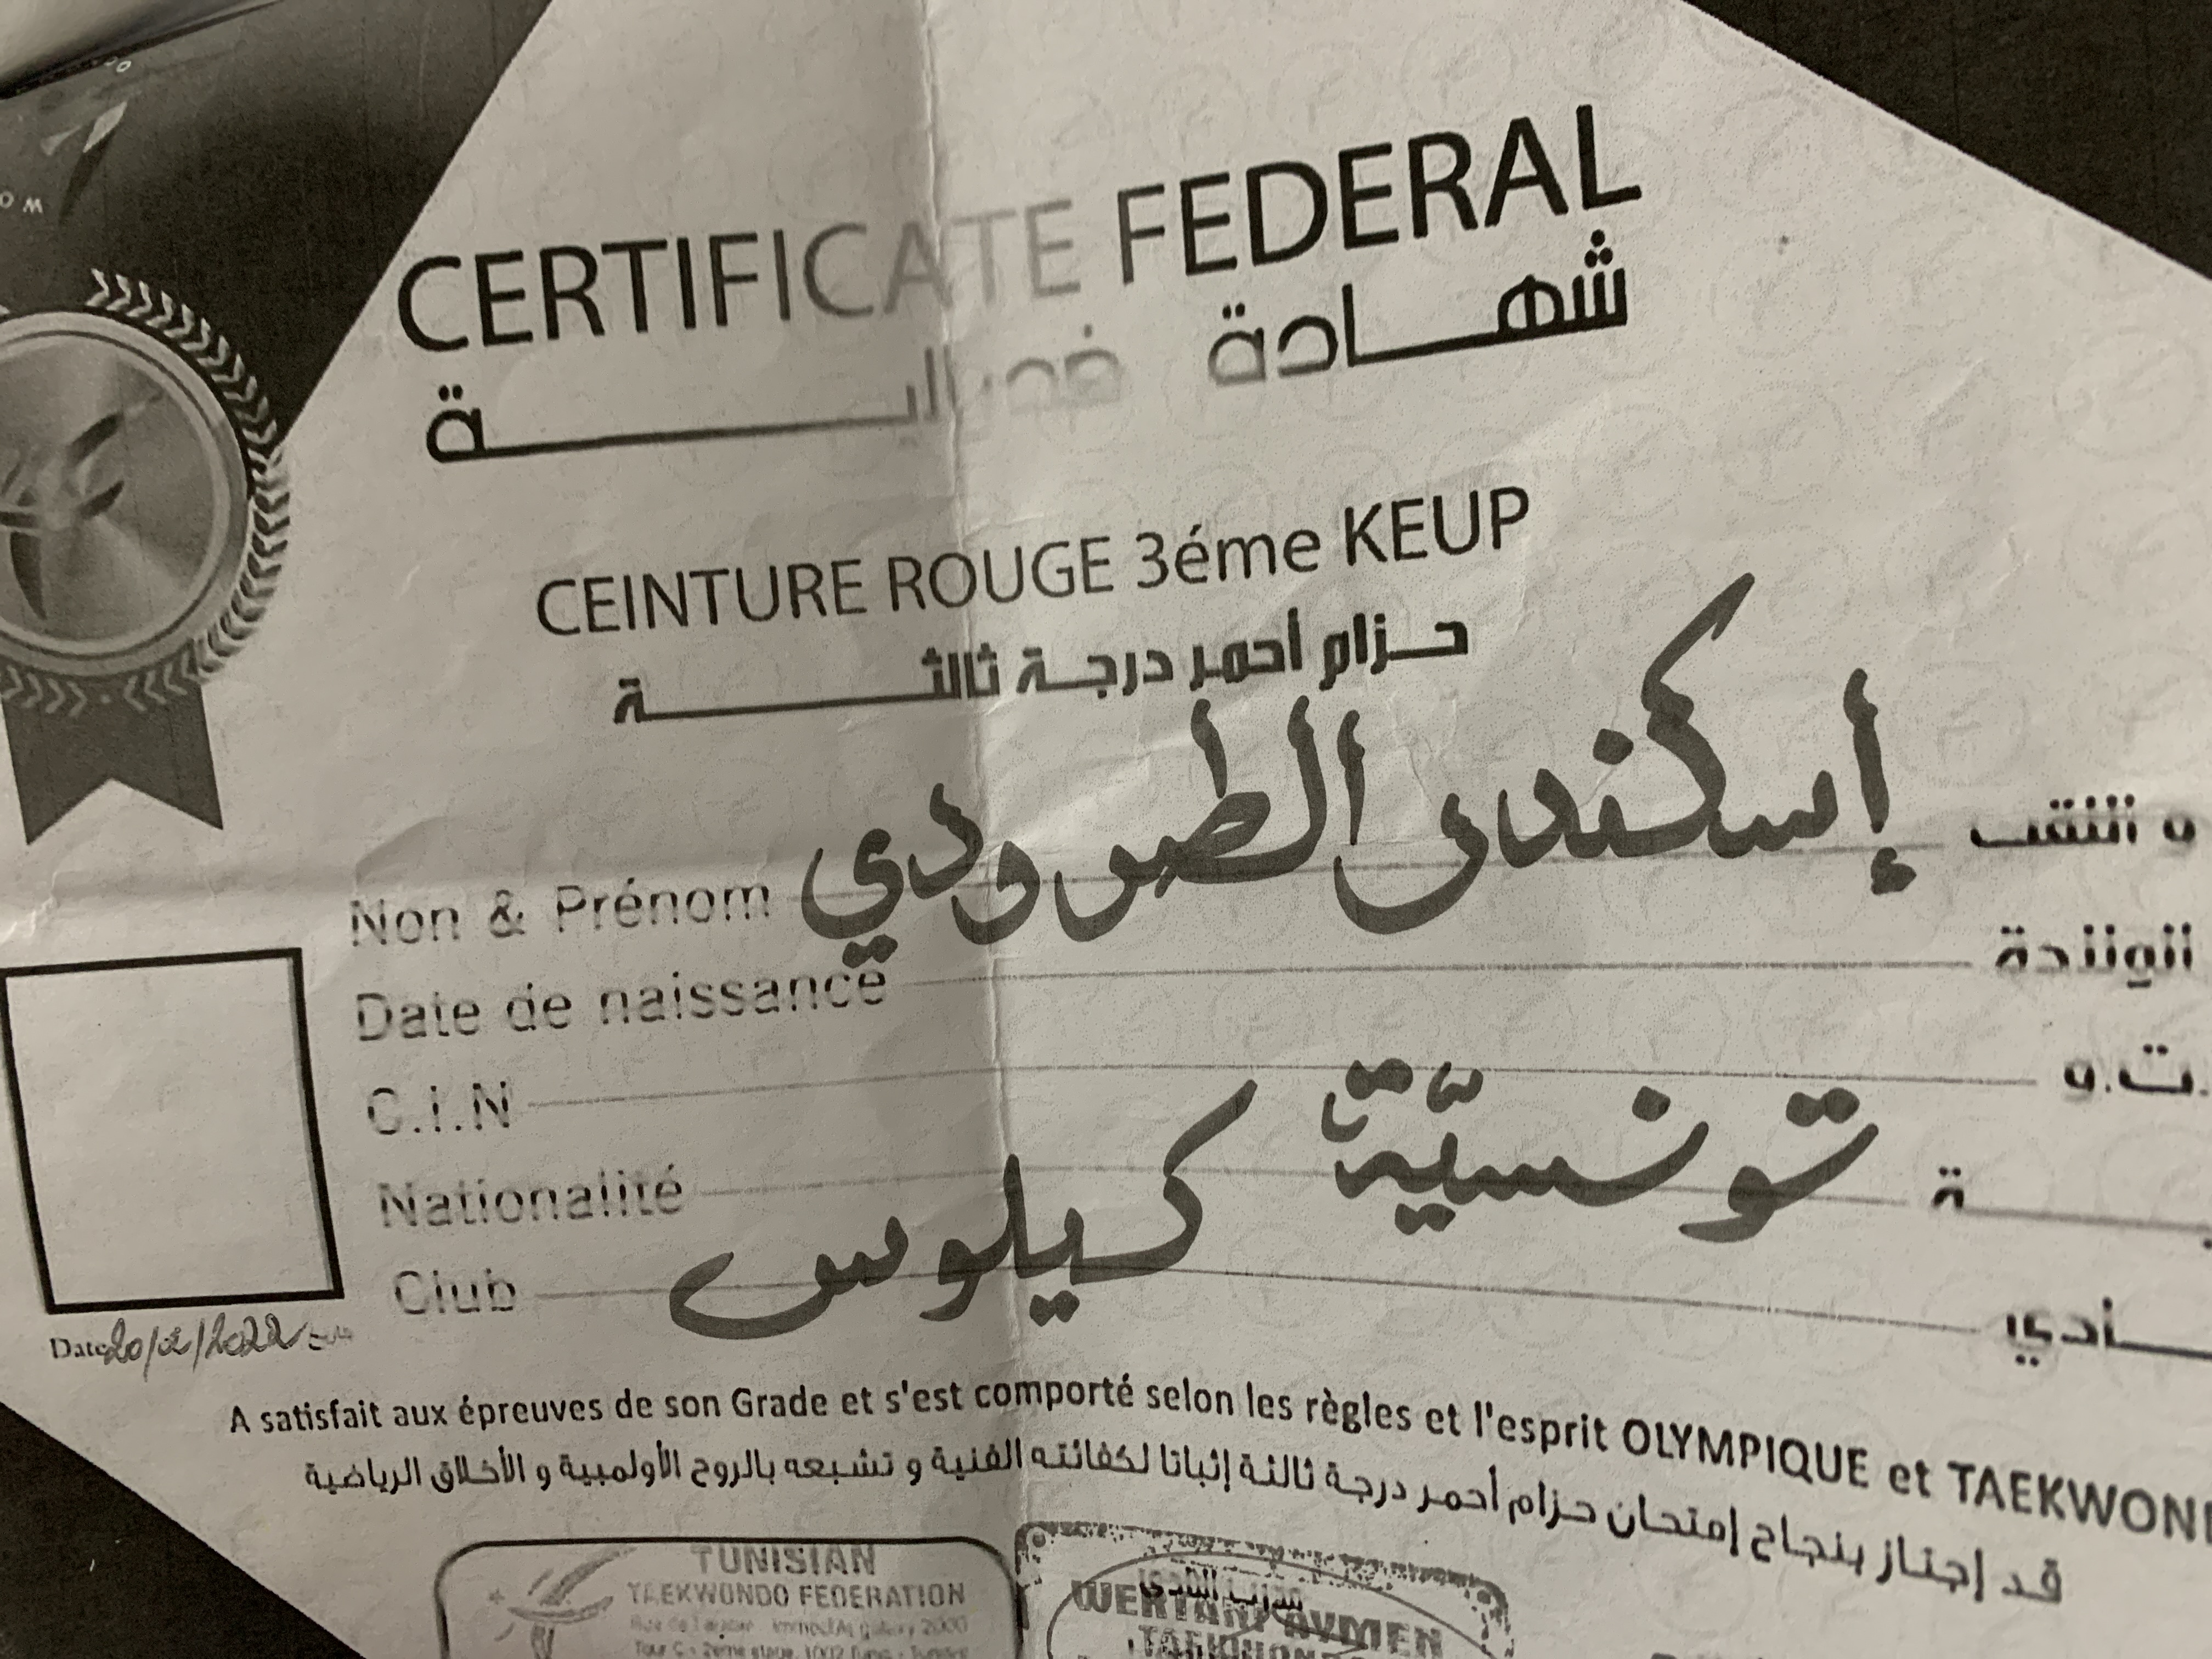 CERTIFICATE FEDERAL
شهادة فدرالية
CEINTURE ROUGE 3éme KEUP
حزام أحمر درجة ثالثة
و اللقب إسكندر الطرودي Non & Prénom
الولادة Date de naissance
ت.و. C.I.N
تونسيّة Nationalité
ـادي كيلوس Club
Date 20/2/2022
A satisfait aux épreuves de son Grade et s'est comporté selon les règles et l'esprit OLYMPIQUE et TAEKWON
قد إجتاز بنجاح إمتحان حزام أحمر درجة ثالثة إثباتا لكفائته الفنية و تشبعه بالروح الأولمبية و الأخلاق الرياضية
TUNISIAN
TAEKWONDO FEDERATION
WERTANI AYMEN